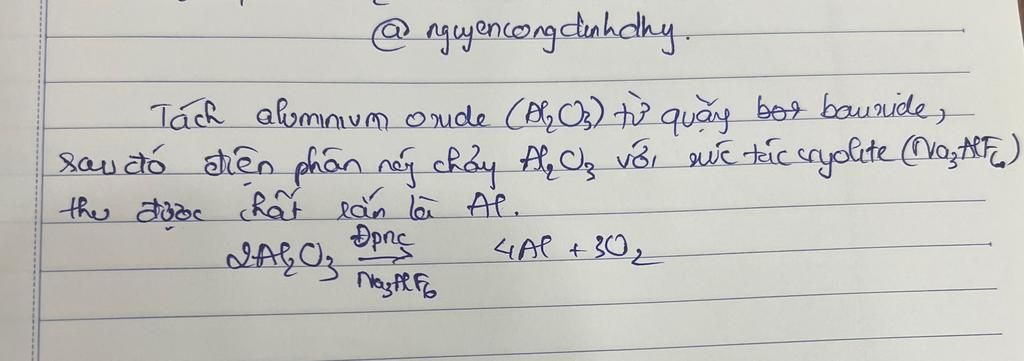 @ nguyencongdinhdhy.
Tách aluminium oxide (Al₂O₃) từ quặng bauxide,
sau đó điện phân nóng chảy Al₂O₃ với xúc tác cryolite (Na₃AlF₆)
thu được chất rắn là Al.
2Al₂O₃ →(Đpnc / Na₃AlF₆) 4Al + 3O₂